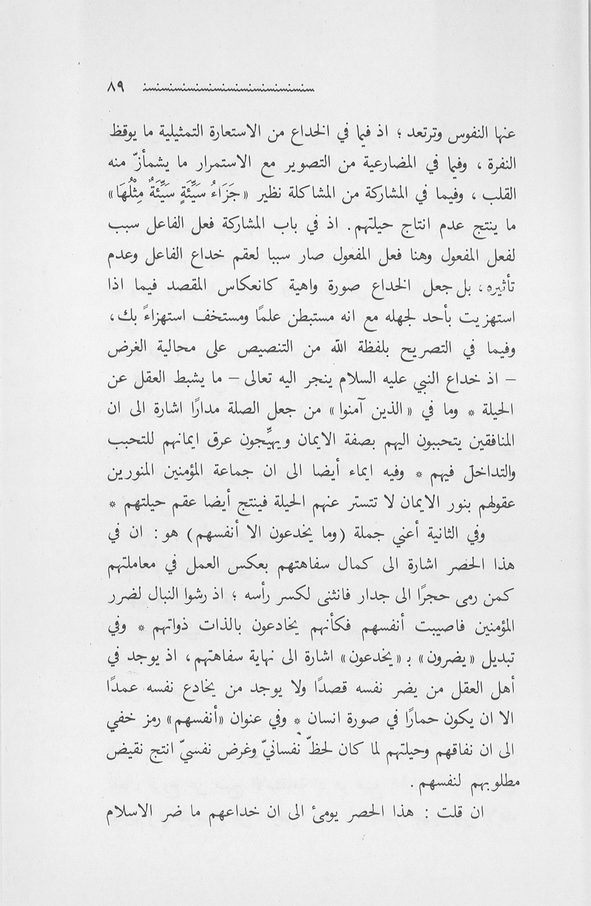 ٨٩
عنها النفوس وترتعد ؛ اذ فيما في الخداع من الاستعارة التمثيلية ما يوقظ
النفرة ، وفيما في المضارعية من التصوير مع الاستمرار ما يشمأزّ منه
القلب ، وفيما في المشاركة من المشاكلة نظير «جَزَاءُ سَيِّئَةٍ سَيِّئَةٌ مِثْلُهَا»
ما ينتج عدم انتاج حيلتهم. اذ في باب المشاركة فعل الفاعل سبب
لفعل المفعول وهنا فعل المفعول صار سببا لعقم خداع الفاعل وعدم
تأثيره، بل جعل الخداع صورة واهية كانعكاس المقصد فيما اذا
استهزيت بأحد لجهله مع انه مستبطن علمًا ومستخف استهزاءً بك،
وفيما في التصريح بلفظة الله من التنصيص على محالية الغرض
– اذ خداع النبي عليه السلام ينجر اليه تعالى – ما يشبط العقل عن
الحيلة * وما في «الذين آمنوا» من جعل الصلة مدارًا اشارة الى ان
المنافقين يتحببون اليهم بصفة الايمان ويهيِّجون عرق ايمانهم للتحبب
والتداخل فيهم * وفيه ايماء أيضا الى ان جماعة المؤمنين المنورين
عقولهم بنور الايمان لا تتستر عنهم الحيلة فينتج أيضا عقم حيلتهم *
وفي الثانية أعني جملة (وما يخدعون الا أنفسهم) هو : ان في
هذا الحصر اشارة الى كمال سفاهتهم بعكس العمل في معاملتهم
كمن رمى حجرًا الى جدار فانثنى لكسر رأسه ؛ اذ رشوا النبال لضرر
المؤمنين فاصيبت أنفسهم فكأنهم يخادعون بالذات ذواتهم * وفي
تبديل «يضرون» بـ «يخدعون» اشارة الى نهاية سفاهتهم، اذ يوجد في
أهل العقل من يضر نفسه قصدًا ولا يوجد من يخادع نفسه عمدًا
الا ان يكون حمارًا في صورة انسان * وفي عنوان «أنفسهم» رمز خفي
الى ان نفاقهم وحيلتهم لما كان لحظّ نفسانيّ وغرض نفسيّ انتج نقيض
مطلوبهم لنفسهم .
ان قلت : هذا الحصر يومئ الى ان خداعهم ما ضر الاسلام